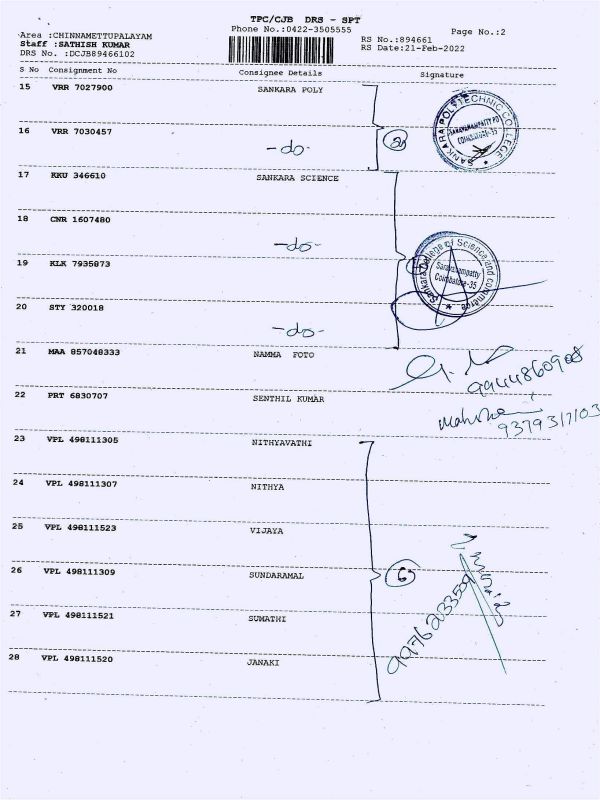 TPC/CJB DRS - SPT
Phone No.:0422-3505555
Page No.:2
Area :CHINNAMETTUPALAYAM
Staff :SATHISH KUMAR
DRS No. :DCJB89466102
RS No.:894661
RS Date:21-Feb-2022
S No Consignment No Consignee Details Signature
15 VRR 7027900 SANKARA POLY
16 VRR 7030457 -do-
SANKARA POLYTECHNIC COLLEGE
SARAVANAMPATTY PO
COIMBATORE-35
17 KKU 346610 SANKARA SCIENCE
18 CNR 1607480 -do-
19 KLK 7935873
Sankara College of Science and commerce
Saravanampatty
Coimbatore-35
20 STY 320018 -do-
21 MAA 857048333 NAMMA FOTO
9944860908
22 PRT 6830707 SENTHIL KUMAR
9379317103
23 VPL 498111305 NITHYAVATHI
24 VPL 498111307 NITHYA
25 VPL 498111523 VIJAYA
26 VPL 498111309 SUNDARAMAL
6
9976233359
27 VPL 498111521 SUMATHI
28 VPL 498111520 JANAKI